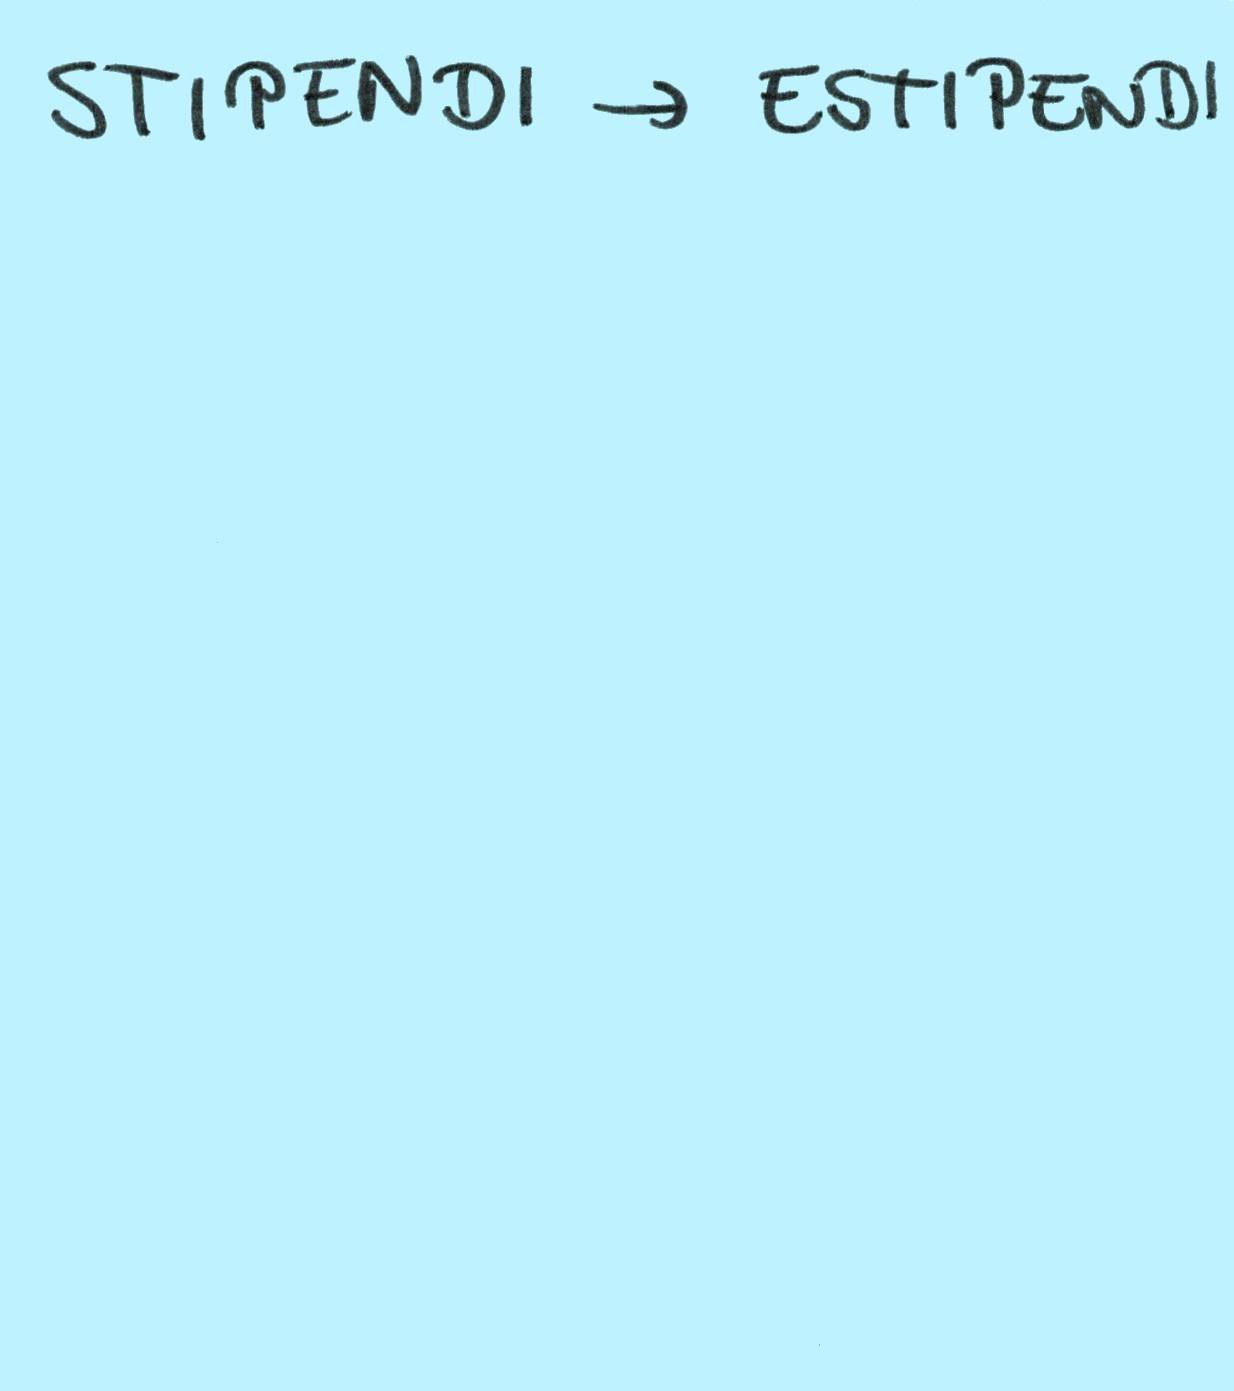 STIPENDI → ESTIPENDI